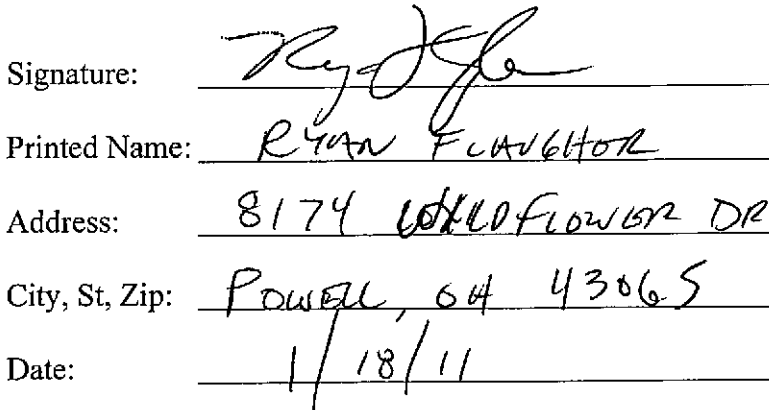 Signature:
Printed Name: RYAN FLAUGHER
Address: 8174 WILDFLOWER DR
City, St, Zip: POWELL, OH 43065
Date: 1/18/11